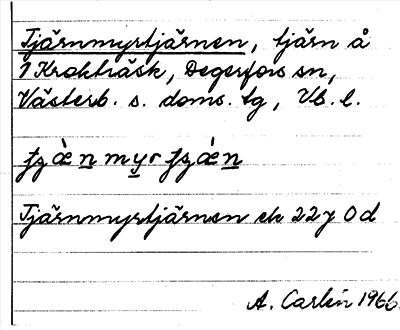 Tjärnmyrtjärnen, tjärn å
1 Krokträsk, Degerfors sn,
Västerb. s. doms. tg, Vb. l.
Tjärnmyrtjärnen ek 22 J 0 d
A. Carlin 1966.